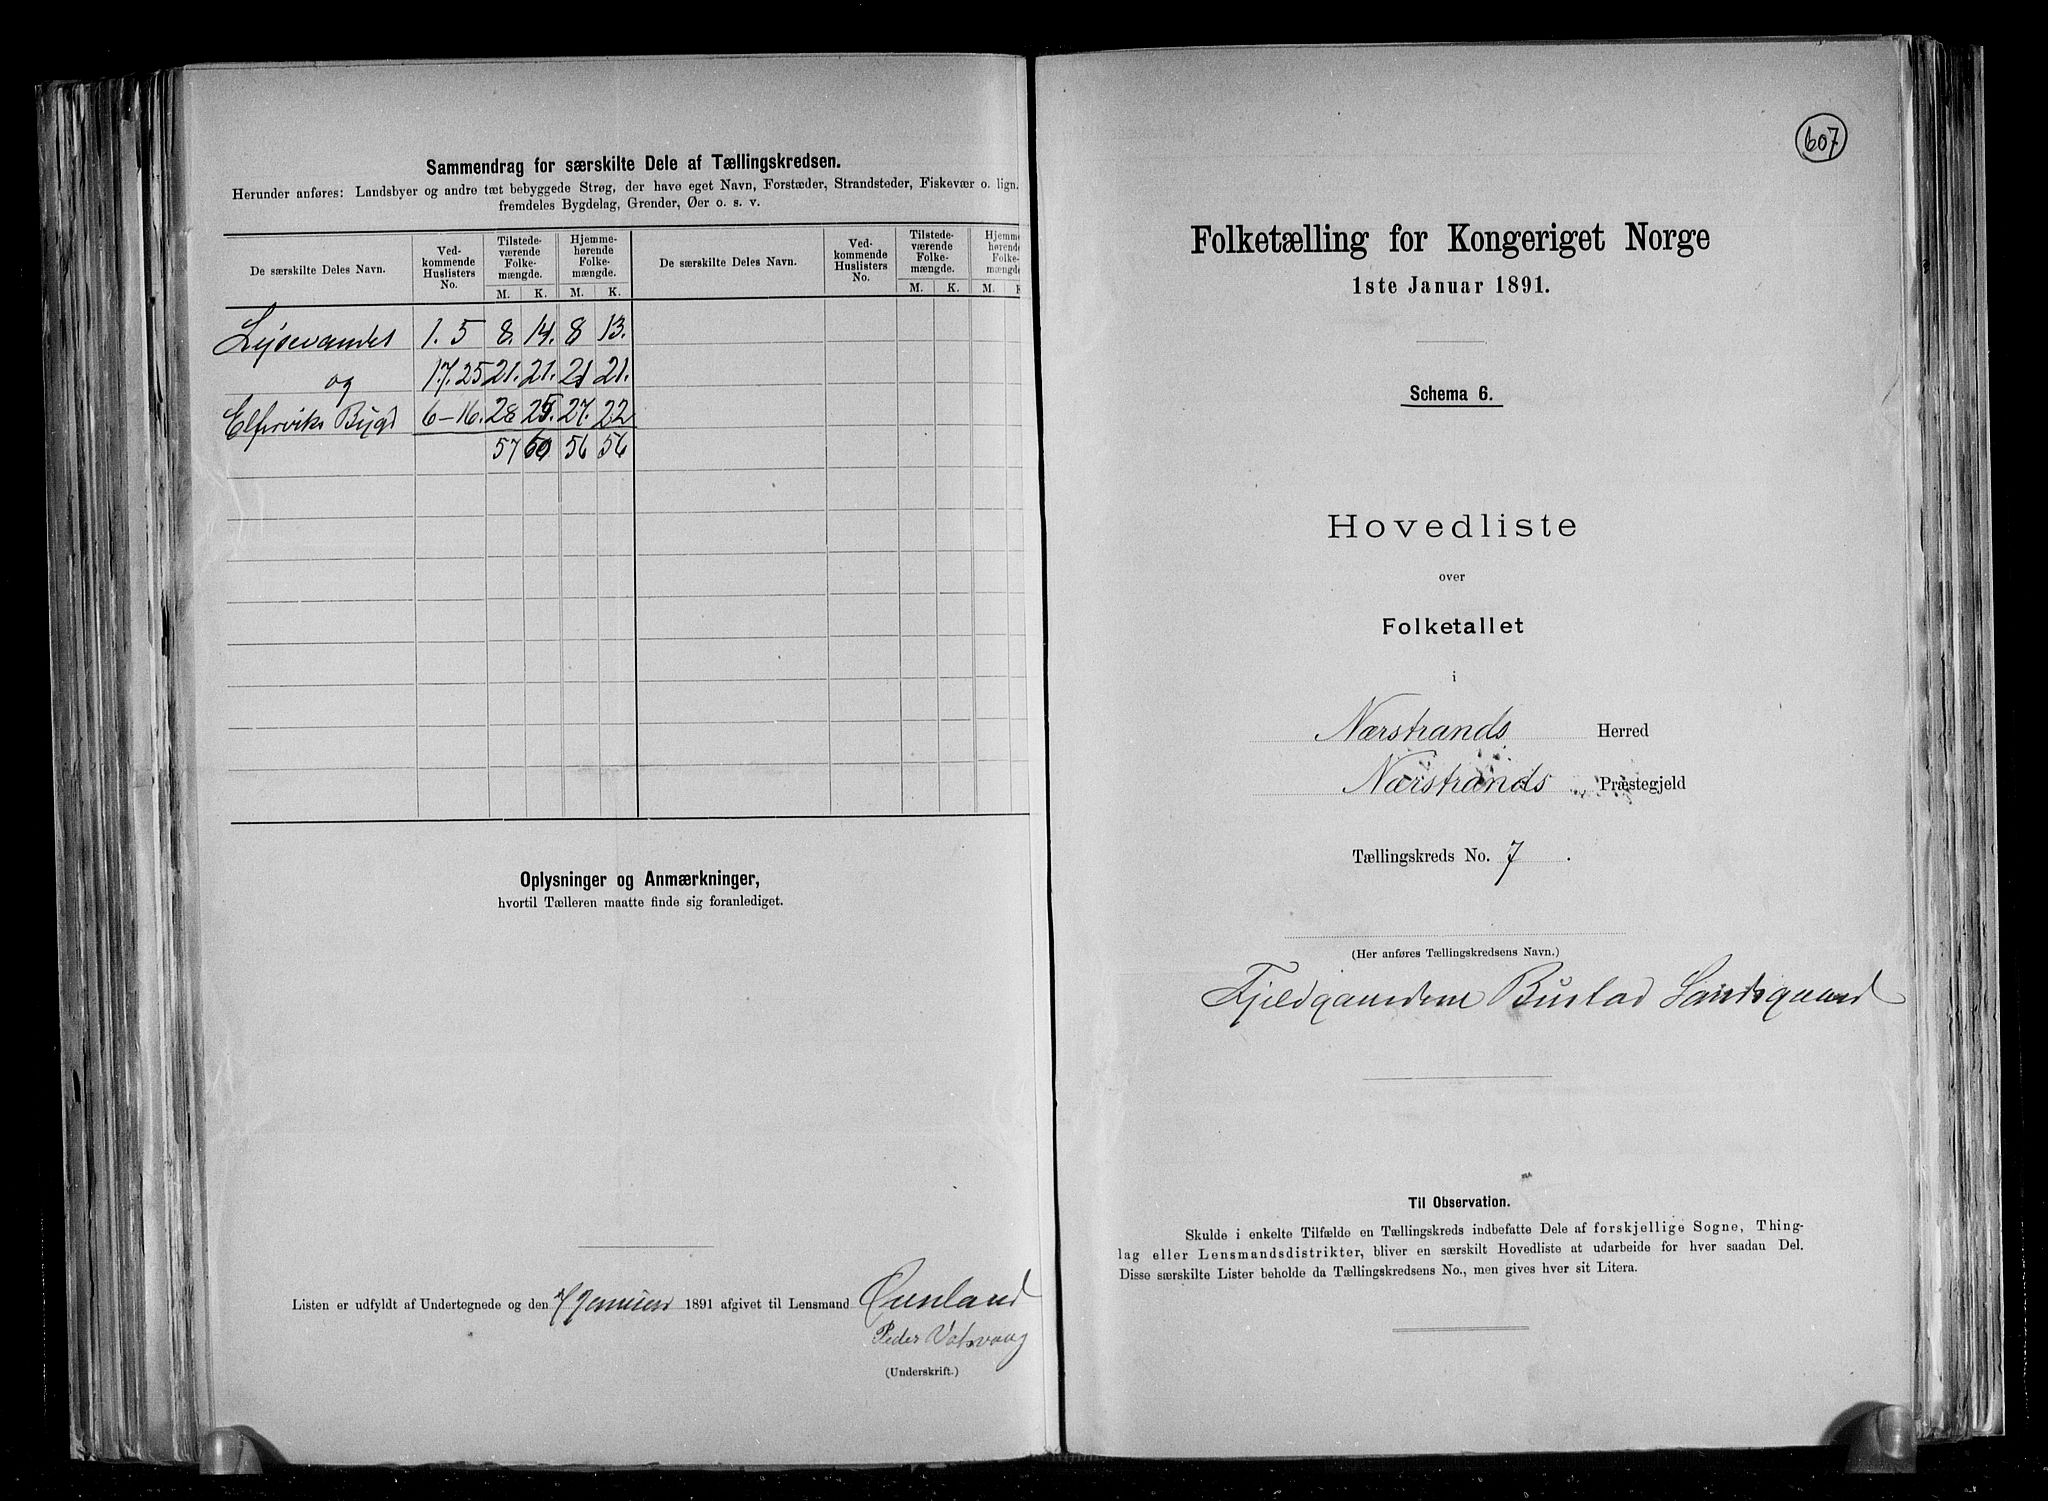 Sammendrag for særskilte Dele af Tællingskredsen.
Herunder anføres: Landsbyer og andre tæt bebyggede Strøg, der have eget Navn, Forstæder, Strandsteder, Fiskevær o. lign.
fremdeles Bygdelag, Grender, Øer o. s. v.
De særskilte Deles Navn. Ved-kommende Huslisters No. Tilstede-værende Folke-mængde. Hjemme-hørende Folke-mængde. De særskilte Deles Navn. Ved-kommende Huslisters No. Tilstede-værende Folke-mængde.
M. K. M. K. M. K. M.
1. 5 8. 14. 8 13.
og 17. 25 21. 21. 21 21.
Bygd 6-16. 28 25. 27. 22
57 60 56 56
Oplysninger og Anmærkninger,
hvortil Tælleren maatte finde sig foranlediget.
Listen er udfyldt af Undertegnede og den Januar 1891 afgivet til Lensmand
Peder Vatsvaag
(Underskrift.)
607
Folketælling for Kongeriget Norge
1ste Januar 1891.
Schema 6.
Hovedliste
over
Folketallet
i
Nærstrands Herred
Nærstrands Præstegjeld
Tællingskreds No. 7.
(Her anføres Tællingskredsens Navn.)
Fjeldgaardene Bustad Sandsgaard
Til Observation.
Skulde i enkelte Tilfælde en Tællingskreds indbefatte Dele af forskjellige Sogne, Thing-
lag eller Lensmandsdistrikter, bliver en særskilt Hovedliste at udarbeide for hver saadan Del.
Disse særskilte Lister beholde da Tællingskredsens No., men gives hver sit Litera.